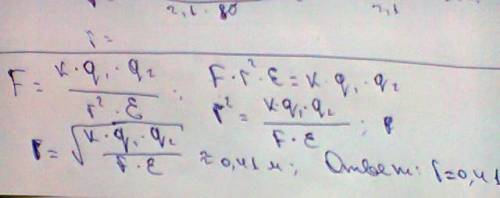 2,1 · 80
2,1
r =
F = K·q₁·q₂ / r²·ε ; F·r²·ε = K·q₁·q₂
r² = K·q₁·q₂ / F·ε ;
r = √(K·q₁·q₂ / F·ε) ≈ 0,41 м; Ответ: r=0,41